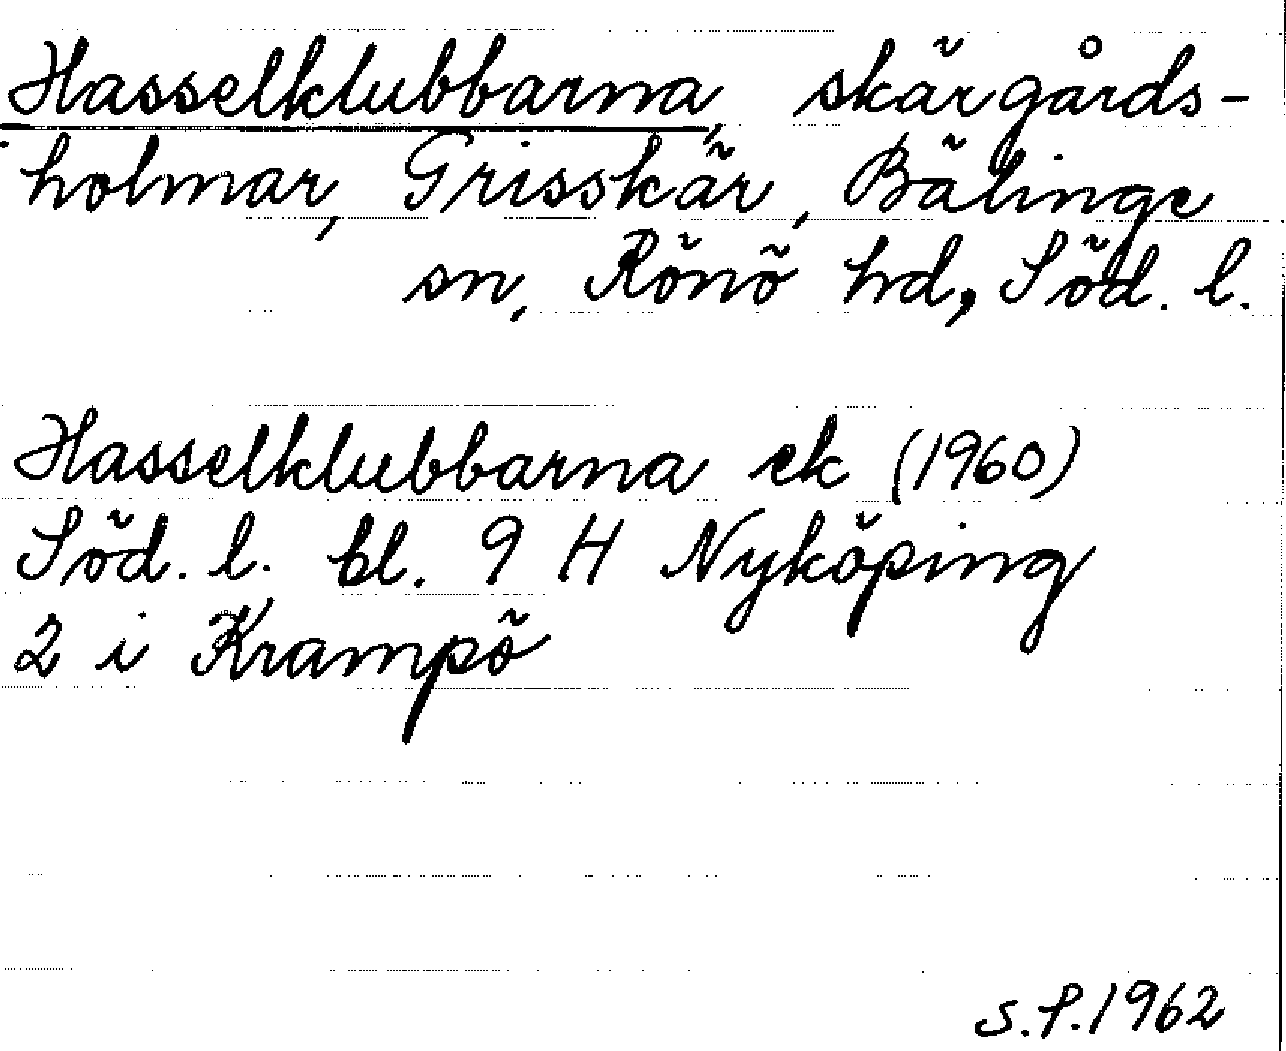 Hasselklubbarna, skärgårds-
holmar, Grisskär, Bälinge
sn, Rönö hd, Söd. l.
Hasselklubbarna ek (1960)
Söd. l. bl. 9 H Nyköping
2 i Krampö
S.S.1962